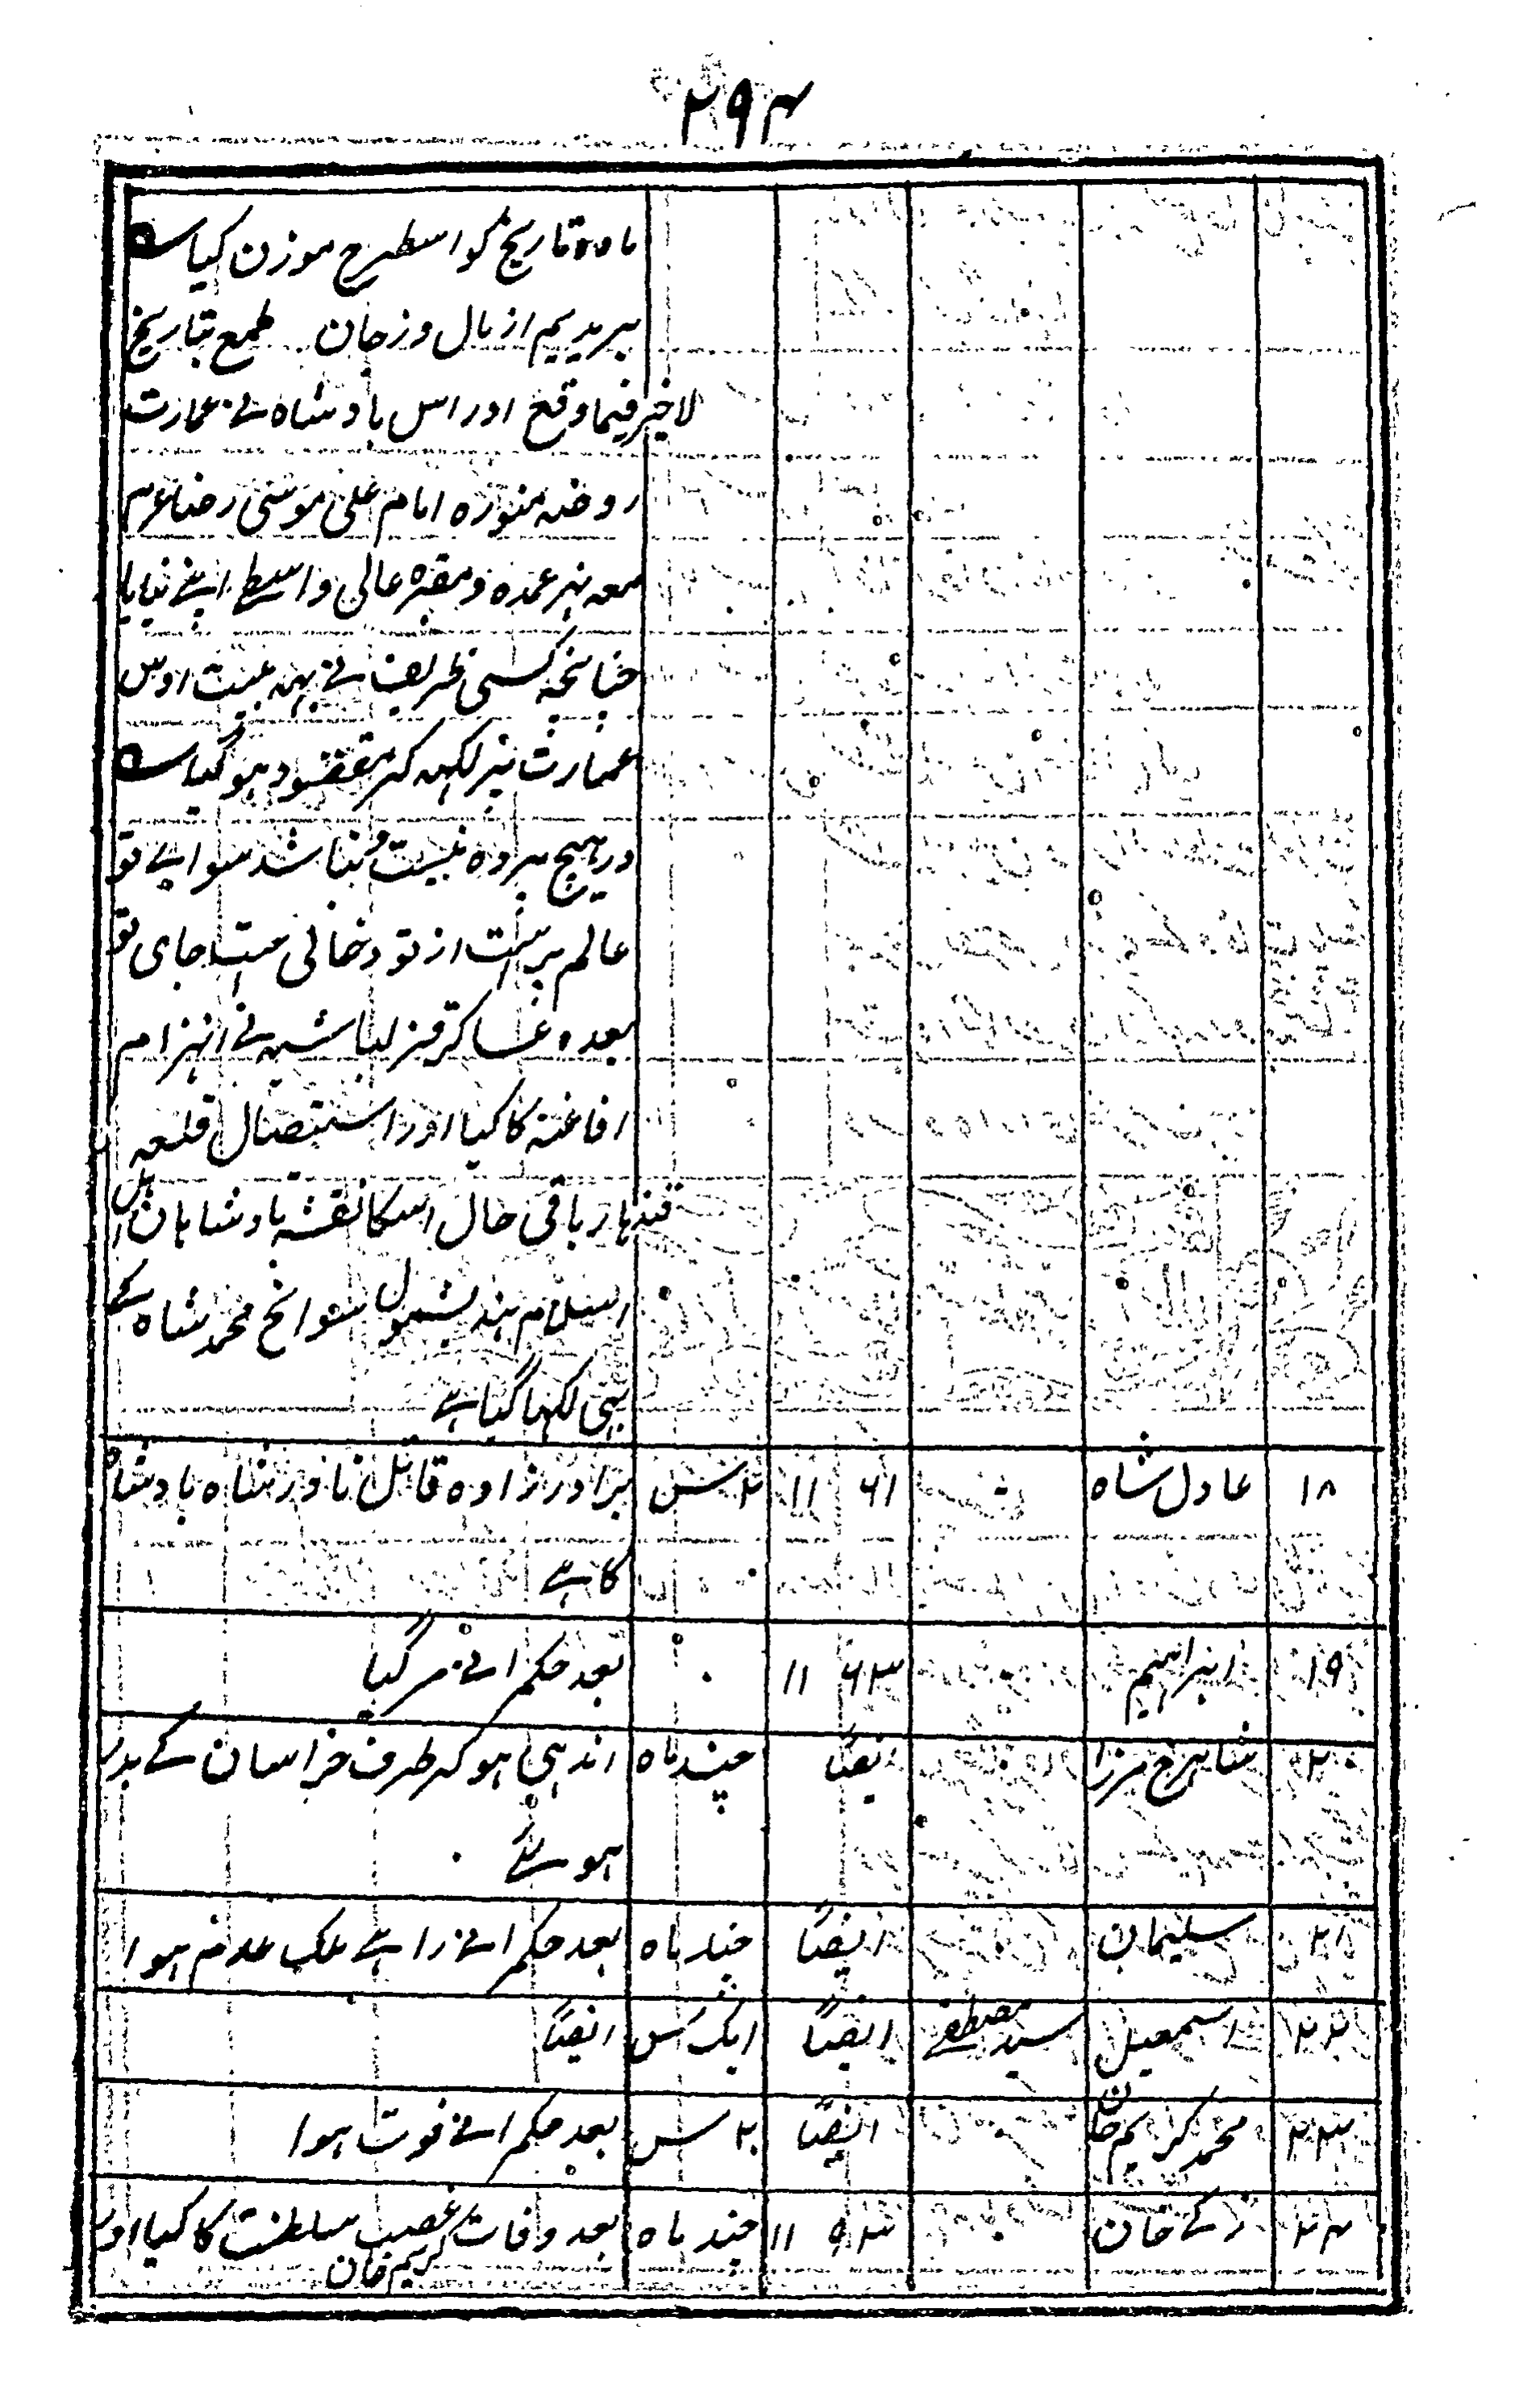 ۲۹۴
مادہ تاریخ کو اسطرح موزن کیا ہے
ببریدیم از مال و زجان طمع بتاریخ
لاخیر فیما وقع اور اس بادشاہ نے عمارت
روضہ منورہ امام علی موسی رضا عرم
معہ نہر عمدہ و مقبرہ عالی واسطے اپنے بنایا
چنانچہ کسی ظریف نے یہہ بیت اوس
عمارت پر لکہہ کر مفقود ہو گیا
در ہیچ پردہ نیست نباشد سوای تو
عالم پر است از تو و خالی است جای تو
بعدہ عساکر قزلباشیہ نے انہزام
افاغنہ کا کیا اور استیصال قلعہ
قندہار باقی حال اسکا نقشہ بادشاہان اہل
اسلام ہند بشمول سوانح محمد شاہ کے
بہی لکہا گیا ہے
۱۸ عادل شاہ ۱۱ ۶۱ ۲ س برادر زادہ قاتل نادر شاہ بادشاہ
کا ہے
۱۹ ابراہیم ۱۱ ۶۳ ۰ بعد حکم انے مر گیا
۲۰ شاہرخ مرزا ایضًا چند ماہ اندہی ہو کر طرف خراسان کے بدر
ہوے
۲۱ سلیمان ایضًا چند ماہ بعد حکم انے راہے ملک عدم ہوا
۲۲ اسمعیل سید مصطفے ایضًا ایک س ایضًا
۲۳ محمد کریم خان ایضًا ۲ س بعد حکم انے فوت ہوا
۲۴ زکے خان ۱۱ ۹۳ چند ماہ بعد وفات کریم خان غصب سلطنت کا کیا اور